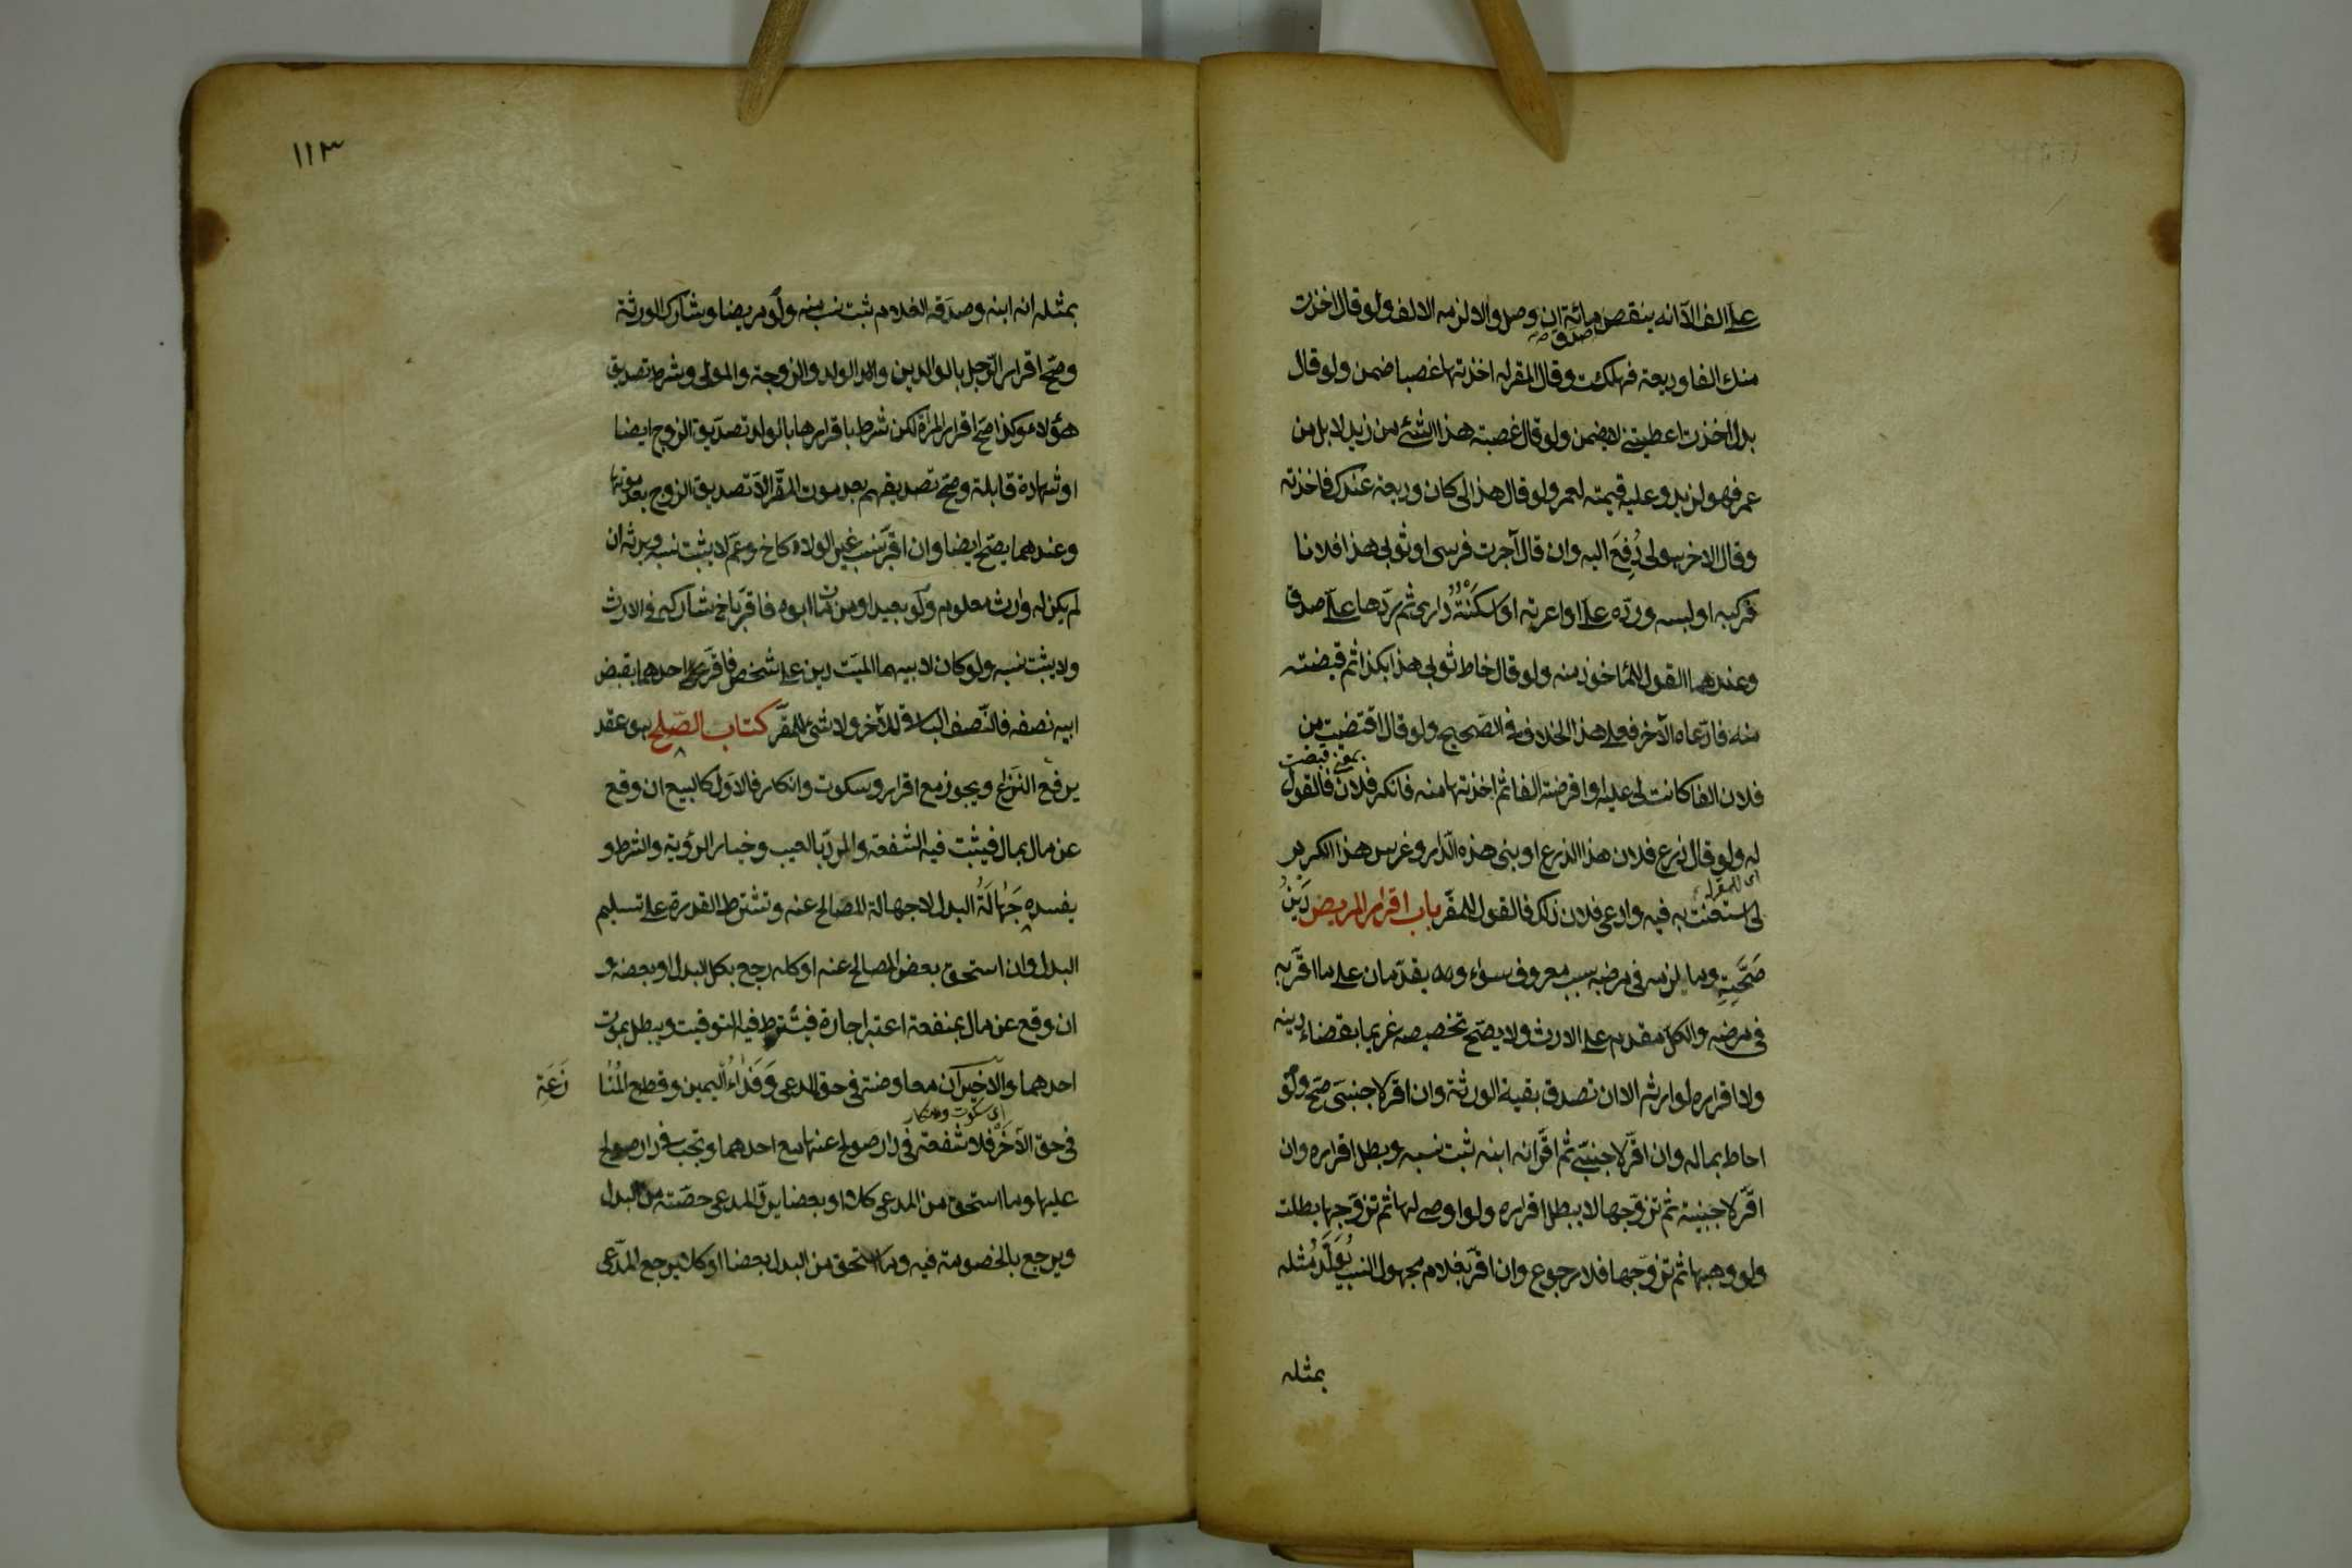 على الف الا انه ينقص مائة ان وصل والا لزمه الالف ولو قال اخذت
صدق
منك الفا وديعة فهلكت وقال المقر له اخذتها غصبا ضمن ولو قال
بدل اخذت اعطيتني لا يضمن ولو قال غصبته هذا الشئ من زيد لا بل من
عمر فهو لزيد وعليه قيمته لعمر ولو قال هذا لى كان وديعة عندك فاخذته
وقال الاخر هو لى دُفِعَ اليه وان قال آجرت فرسى او ثوبى هذا فلانا
فركبه او لبسه وردّه علىّ او اعرته او اسكنتُهُ دارى ثم ردّها علىّ صدق
وعندهما القول للمأخوذ منه ولو قال خاط ثوبى هذا بكذا ثم قبضته
منه فادّعاه الآخر فعلى هذا الخلاف فى الصّحيح ولو قال اقتضيت من
بمعنى قبضت
فلان الفا كانت لى عليه او اقرضته الفا ثم اخذتها منه فانكر فلان فالقول
له ولو قال زرع فلان هذا الزرع او بنى هذه الدّار وغرس هذا الكرم
اى للمقر له
لى استعنت به فيه وادعى فلان ذلك فالقول للمقرّ باب اقرار المريض دَيْنُ
صَحَّتِهِ وما لزمه فى مرضه بسبب معروف سواء ويقدّمان على ما اقرّ به
فى مرضه والكلّ مقدم على الارث ولا يصّح تخصيصه غريما بقضاء دينه
ولا اقراره لوارثه الا ان تصدق بقية الورثة وان اقرّ لاجنبىّ صحّ ولو
احاط بماله وان اقرّ لاجنبىّ ثم اقرّ انه ابنه ثبت نسبه وبطل اقراره وان
اقرّ لاجنبيّة ثم تزوّجها لا يبطل اقراره ولو اوصى لها ثم تزوّجها بطلت
ولو وهبها ثم تزوّجها فلا رجوع وان اقرّ بغلام مجهول النسب يُوَلَّدُ مثله
بمثله
١١٣
بمثله انه ابنه وصدّقه الغلام ثبت نسبه منه ولو مريضا ويشارك الورثة
وصّح اقرار الرّجل بالوالدين والولد والزوجة والمولى وشرط تصديق
هؤلاء وكذا صحّ اقرار المرأة لكن شرط باقرارها بالولد تصديق الزوج ايضا
او شهادة قابلة وصحّ تصديقهم بعد موت المقرّ الّا تصديق الزوج بعد موتها
وعندهما يصّح ايضا وان اقرّ بنسب غير الولاد كاخ وعمّ لا يثبت نسبه ويرثه ان
لم يكن له وارث معلوم ولو بعيدا ومن مات ابوه فاقرّ باخ شاركه فى الارث
ولا يثبت نسبه ولو كان لابيهما الميّت دين على شخص فاقرّ احدهما بقبض
ابيه نصفه فالنّصف الباقى للآخر ولا شئ للمقرّ كتاب الصّلح هو عقد
يرفع النّزاع ويجوز مع اقرار وسكوت وانكار فالاوّل كالبيع ان وقع
عن مال بمال فيثبت فيه الشّفعة والردّ بالعيب وخيار الرؤية والشرط و
يفسده جَهَالَةُ البدل لا جهالة المصالح عنه وتشترط القدرة على تسليم
البدل وان استحق بعض المصالح عنه او كله رجع بكل البدل او بعضه و
ان وقع عن مال بمنفعة اعتبر اجارة فيشترط فيه التوقيت ويبطل بموت
احدهما والاخيران معاوضة فى حق المدعى وَفِدَاءُ اليمين وقطع المُنَا
زَعَةِ
اى سكوت وانكار
فى حقّ الآخر فلا شفعة فى دار صولح عنها مع احدهما وتجب فى دار صولح
عليها وما استحق من المدعى كلا او بعضا يردّ المدعى حصّته من البدل
ويرجع بالخصومة فيه وما استحق من البدل بعضا او كلا يرجع المدّعى